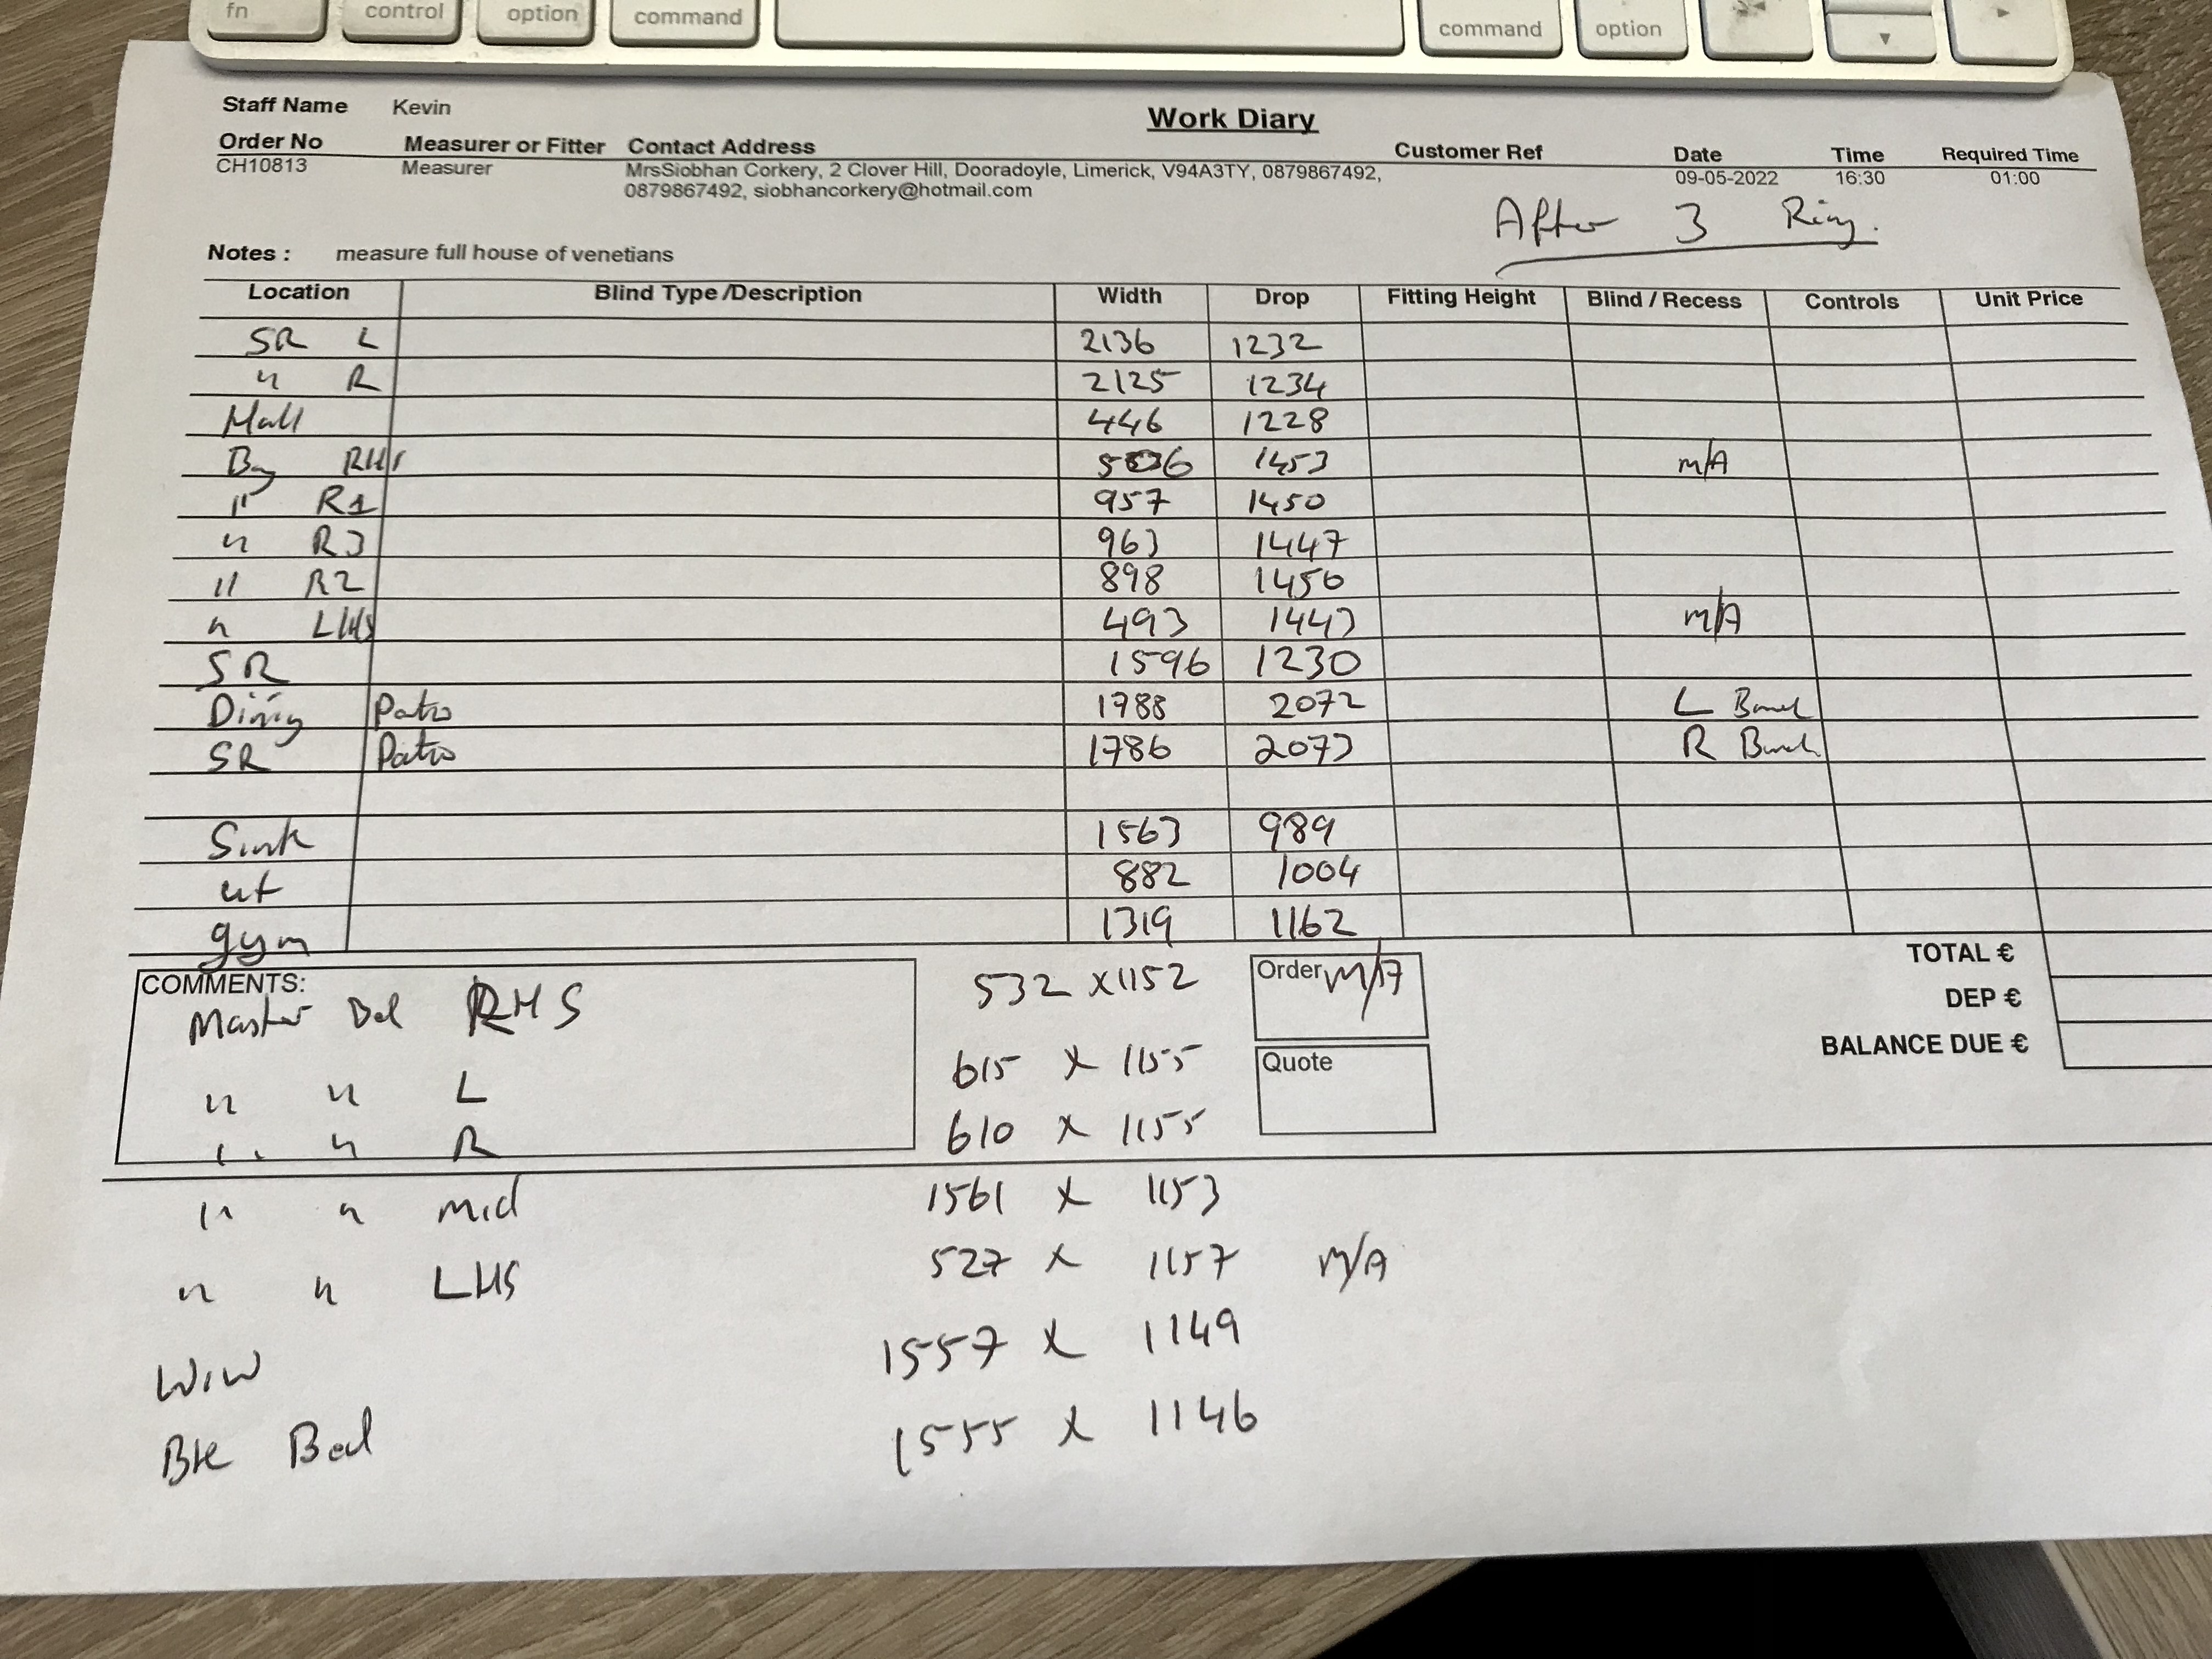 fn control option command command option
Work Diary
Staff Name Kevin
Order No Measurer or Fitter Contact Address Customer Ref Date Time Required Time
CH10813 Measurer MrsSiobhan Corkery, 2 Clover Hill, Dooradoyle, Limerick, V94A3TY, 0879867492, 09-05-2022 16:30 01:00
0879867492, siobhancorkery@hotmail.com
After 3 Ring.
Notes : measure full house of venetians
Location Blind Type /Description Width Drop Fitting Height Blind / Recess Controls Unit Price
SR L 2136 1232
" R 2125 1234
Hall 446 1228
Bay RHS 1453 m/A
" R1 957 1450
" R3 963 1447
" R2 898 1450
" LHS 493 1443 m/A
SR 1596 1230
Dining Patio 1788 2072 L
SR Patio 1786 2073 R
Sink 1563 989
ut 882 1004
gym 1319 1162
TOTAL €
DEP €
BALANCE DUE €
COMMENTS:
Order
Quote
Master Bed RHS 532 x 1152 m/A
" " L 615 x 1155
" " R 610 x 1155
" " mid 1561 x 1153
" " LHS 527 x 1157 m/A
WIW 1557 x 1149
Bk Bed 1555 x 1146